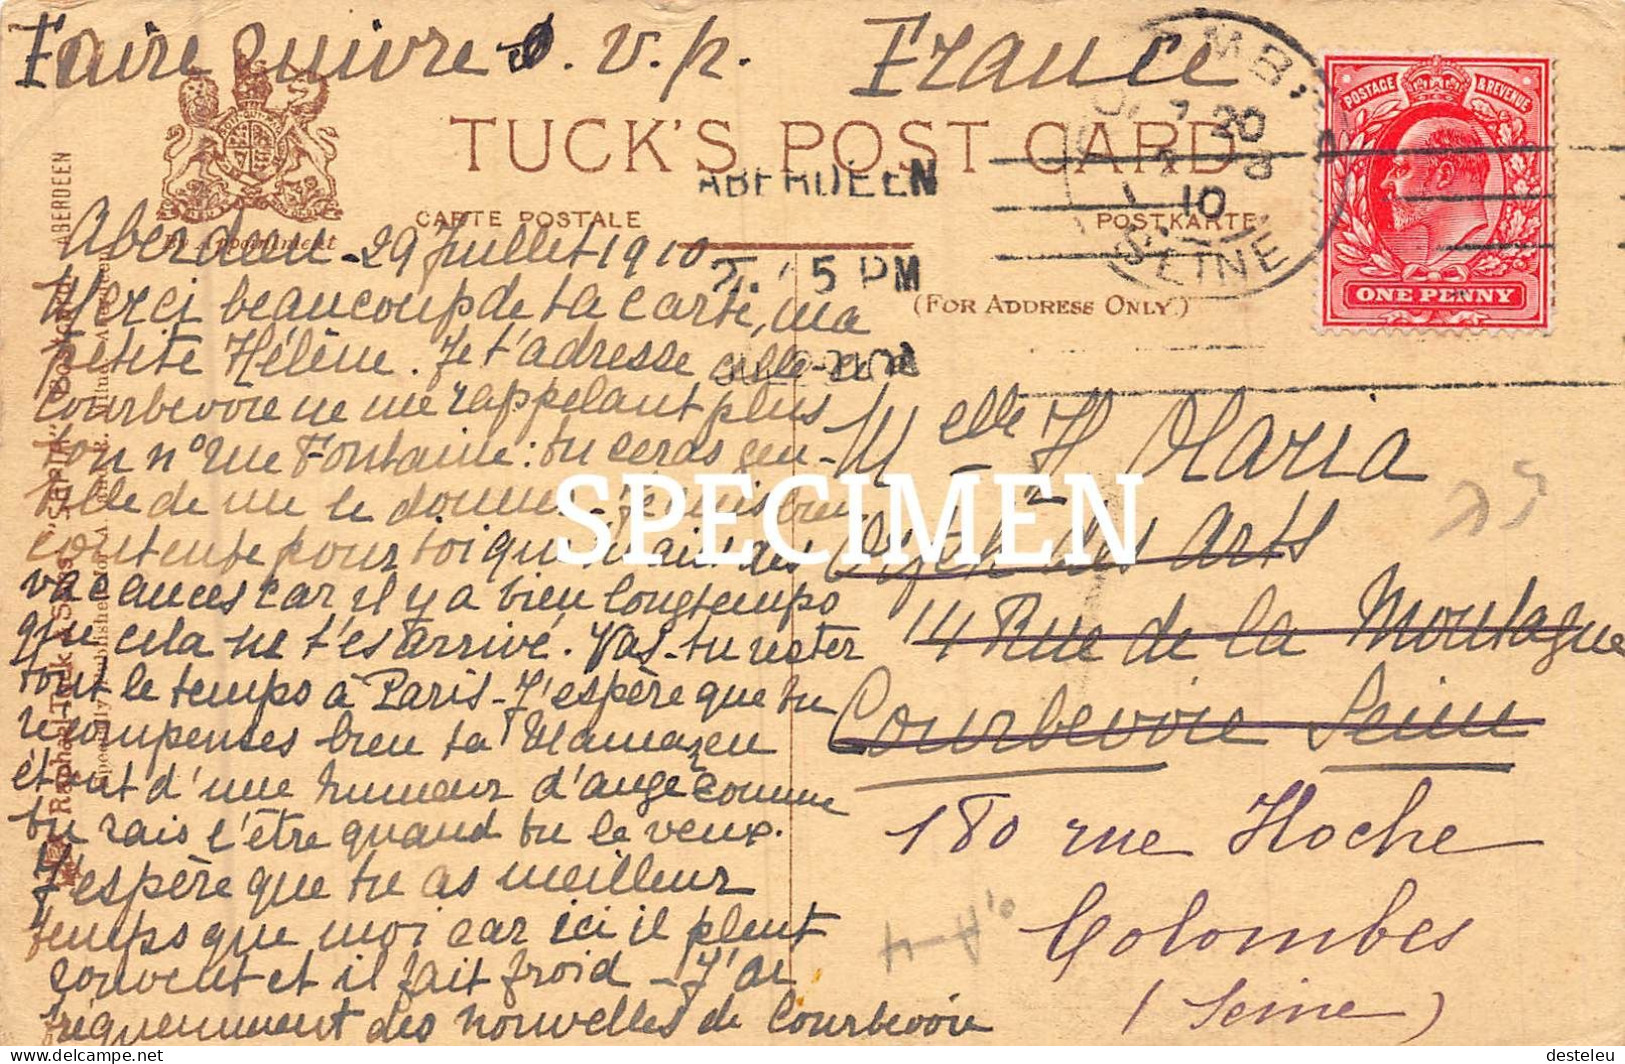 Faire suivre s. v. p. France
TUCK'S POST CARD
CARTE POSTALE
POSTKARTE
By Appointment
(FOR ADDRESS ONLY.)
ABERDEEN
5 PM
10
SEINE
POSTAGE & REVENUE
ONE PENNY
ABERDEEN
Raphael Tuck & Sons' "SEPIA" Postcard
Aberdeen - 29 Juillet 1910
Merci beaucoup de ta carte, ma
petite Hélène. Je t'adresse celle-ci à
Courbevoie ne me rappelant plus
ton n° rue Fontaine : tu seras gen-
tille de me le donner - Je suis bien
contente pour toi que tu aies des
vacances car il y a bien longtemps
que cela ne t'es arrivé. Vas-tu rester
tout le temps à Paris - J'espère que tu
récompenses bien ta Maman en
étant d'une humeur d'ange comme
tu sais l'être quand tu le veux.
J'espère que tu as meilleur
temps que moi car ici il pleut
souvent et il fait froid - J'ai
fréquemment des nouvelles de Courbevoie
Melle H Maria
des Arts
14 Rue de la Montagne
Courbevoie Seine
180 rue Hoche
Colombes
(Seine)
SPECIMEN
desteleu